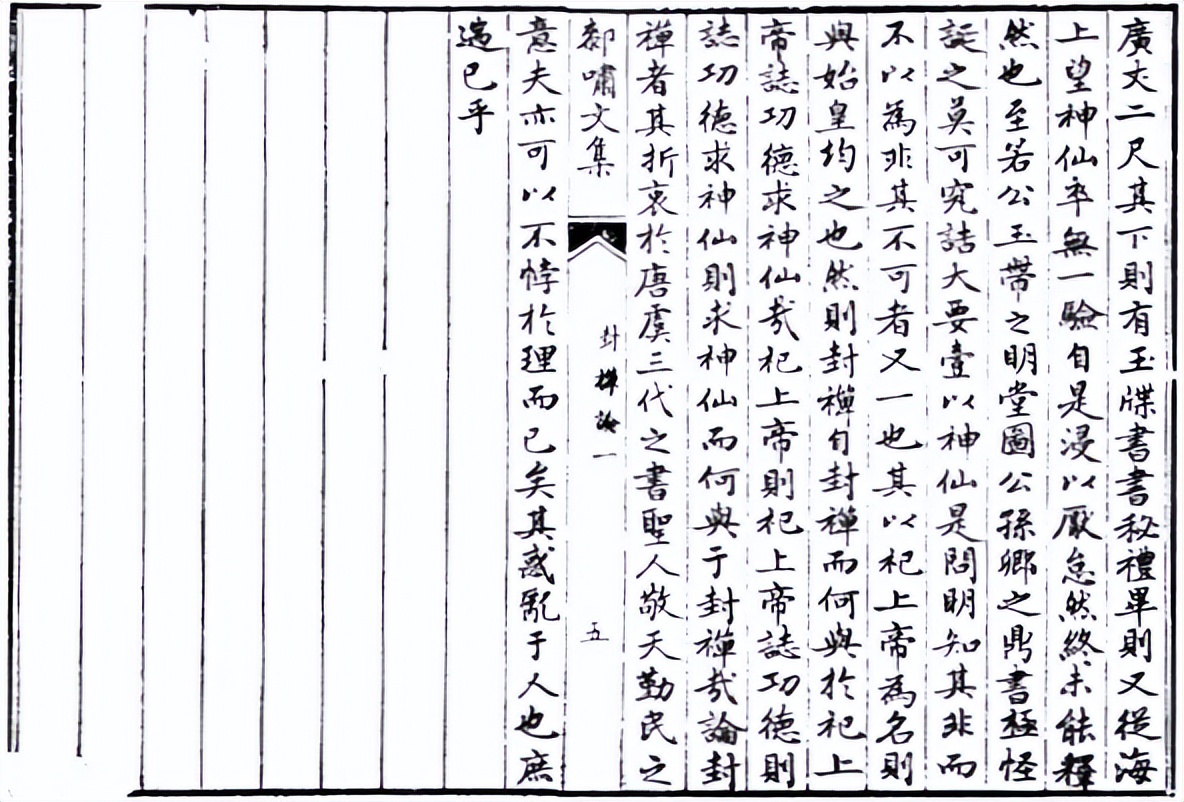 廣丈二尺其下則有玉牒書書秘禮畢則又從海
上望神仙卒無一驗自是浸以厭怠然終未能釋
然也至若公玉帶之明堂圖公孫卿之鼎書極怪
誕之莫可究詰大要壹以神仙是問明知其非而
不以為非其不可者又一也其以祀上帝為名則
與始皇均之也然則封禪自封禪而何與於祀上
帝誌功德求神仙哉祀上帝則祀上帝誌功德則
誌功德求神仙則求神仙而何與于封禪哉論封
禪者其折衷於唐虞三代之書聖人敬天勤民之
郝嘯文集
封禪論一
五
意夫亦可以不悖於理而已矣其惑亂于人也庶
遏已乎